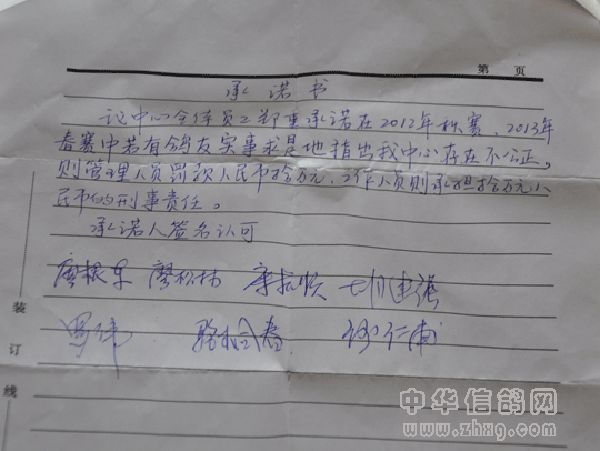 第 页
承诺书
议中心全体员工郑重承诺在2012年秋赛、2013年
春赛中若有鸽友实事求是地指出我中心存在不公正,
则管理人员罚款人民币拾万元,工作人员则承担拾万元人
民币的刑事责任。
承诺人签名认可
廖根生 廖松林
装
订
线
中华信鸽网
www.zhxg.com